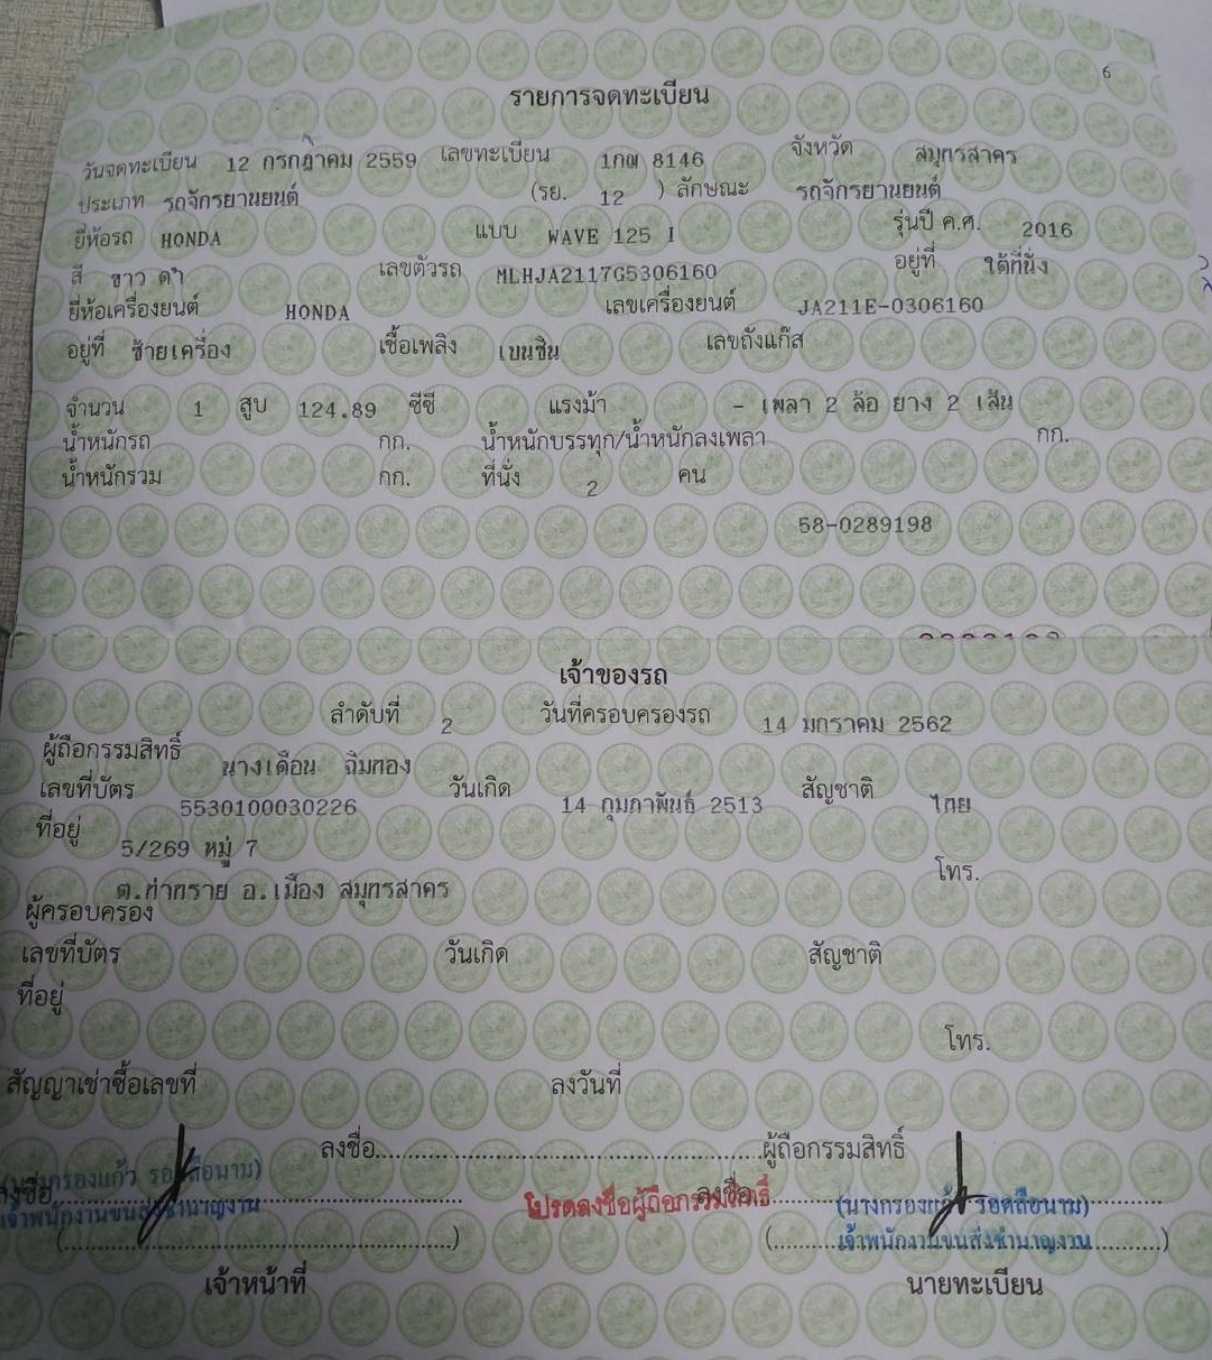 6
รายการจดทะเบียน
วันจดทะเบียน 12 กรกฎาคม 2559 เลขทะเบียน 1กผ 8146 จังหวัด สมุทรสาคร
ประเภท รถจักรยานยนต์ (รย. 12 ) ลักษณะ รถจักรยานยนต์
ยี่ห้อรถ HONDA แบบ WAVE 125 I รุ่นปี ค.ศ. 2016
สี ขาว ดำ เลขตัวรถ MLHJA2117G5306160 อยู่ที่ ใต้ที่นั่ง
ยี่ห้อเครื่องยนต์ HONDA เลขเครื่องยนต์ JA211E-0306160
อยู่ที่ ซ้ายเครื่อง เชื้อเพลิง เบนซิน เลขถังแก๊ส
จำนวน 1 สูบ 124.89 ซีซี แรงม้า - เพลา 2 ล้อ ยาง 2 เส้น
น้ำหนักรถ กก. น้ำหนักบรรทุก/น้ำหนักลงเพลา กก.
น้ำหนักรวม กก. ที่นั่ง 2 คน
58-0289198
เจ้าของรถ
ลำดับที่ 2 วันที่ครอบครองรถ 14 มกราคม 2562
ผู้ถือกรรมสิทธิ์ นางเดือน ฉิมทอง
เลขที่บัตร 5530100030226 วันเกิด 14 กุมภาพันธ์ 2513 สัญชาติ ไทย
ที่อยู่ 5/269 หมู่ 7
โทร.
ต.ท่าทราย อ.เมือง สมุทรสาคร
ผู้ครอบครอง
เลขที่บัตร วันเกิด สัญชาติ
ที่อยู่
โทร.
สัญญาเช่าซื้อเลขที่ ลงวันที่
ลงชื่อ..........ผู้ถือกรรมสิทธิ์
ลงชื่อ.......... โปรดลงชื่อผู้ถือกรรมสิทธิ์ ลงชื่อ.......... (นางกรองแก้ว รอดลือนาม)
เจ้าพนักงานขนส่งชำนาญงาน
(..........) (..........เจ้าพนักงานขนส่งชำนาญงาน..........)
เจ้าหน้าที่ นายทะเบียน